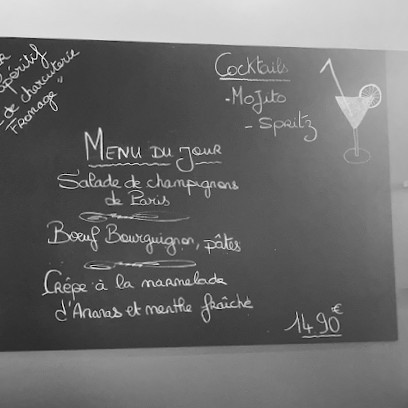 apéritif
de charcuterie
Fromage"
Cocktails
-Mojito
- Spritz
Menu du jour
Salade de champignons
de Paris
Bœuf Bourguignon, pâtes
Crêpe à la marmelade
d'Ananas et menthe fraîche
14.90€